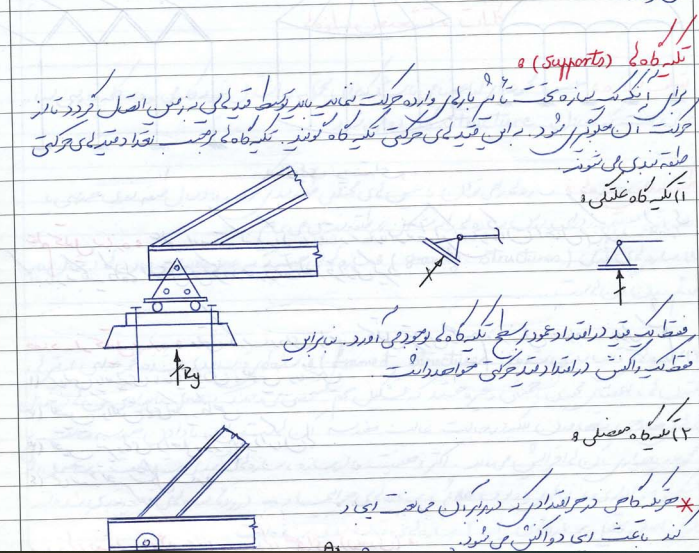 تکیه گاهها (Supports) :
برای آنکه یک سازه تحت تأثیر بارهای وارده حرکت ننماید باید توسط قیدهایی به زمین اتصال گردد تا از
حرکت آن جلوگیری شود. به این قیدهای حرکتی تکیه گاه گویند. تکیه گاهها برحسب تعداد قیدهای حرکتی
طبقه بندی می شوند.
۱) تکیه گاه غلتکی :
فقط یک قید در امتداد عمود بر سطح تکیه گاهها بوجود می آورد. بنابراین
فقط یک واکنش در امتداد قید حرکتی خواهد داشت.
Ry
۲) تکیه گاه مفصلی :
* هر تکیه گاهی در هر امتدادی که در برابر آن ممانعت ایجاد
کند باعث ایجاد واکنش می شود.